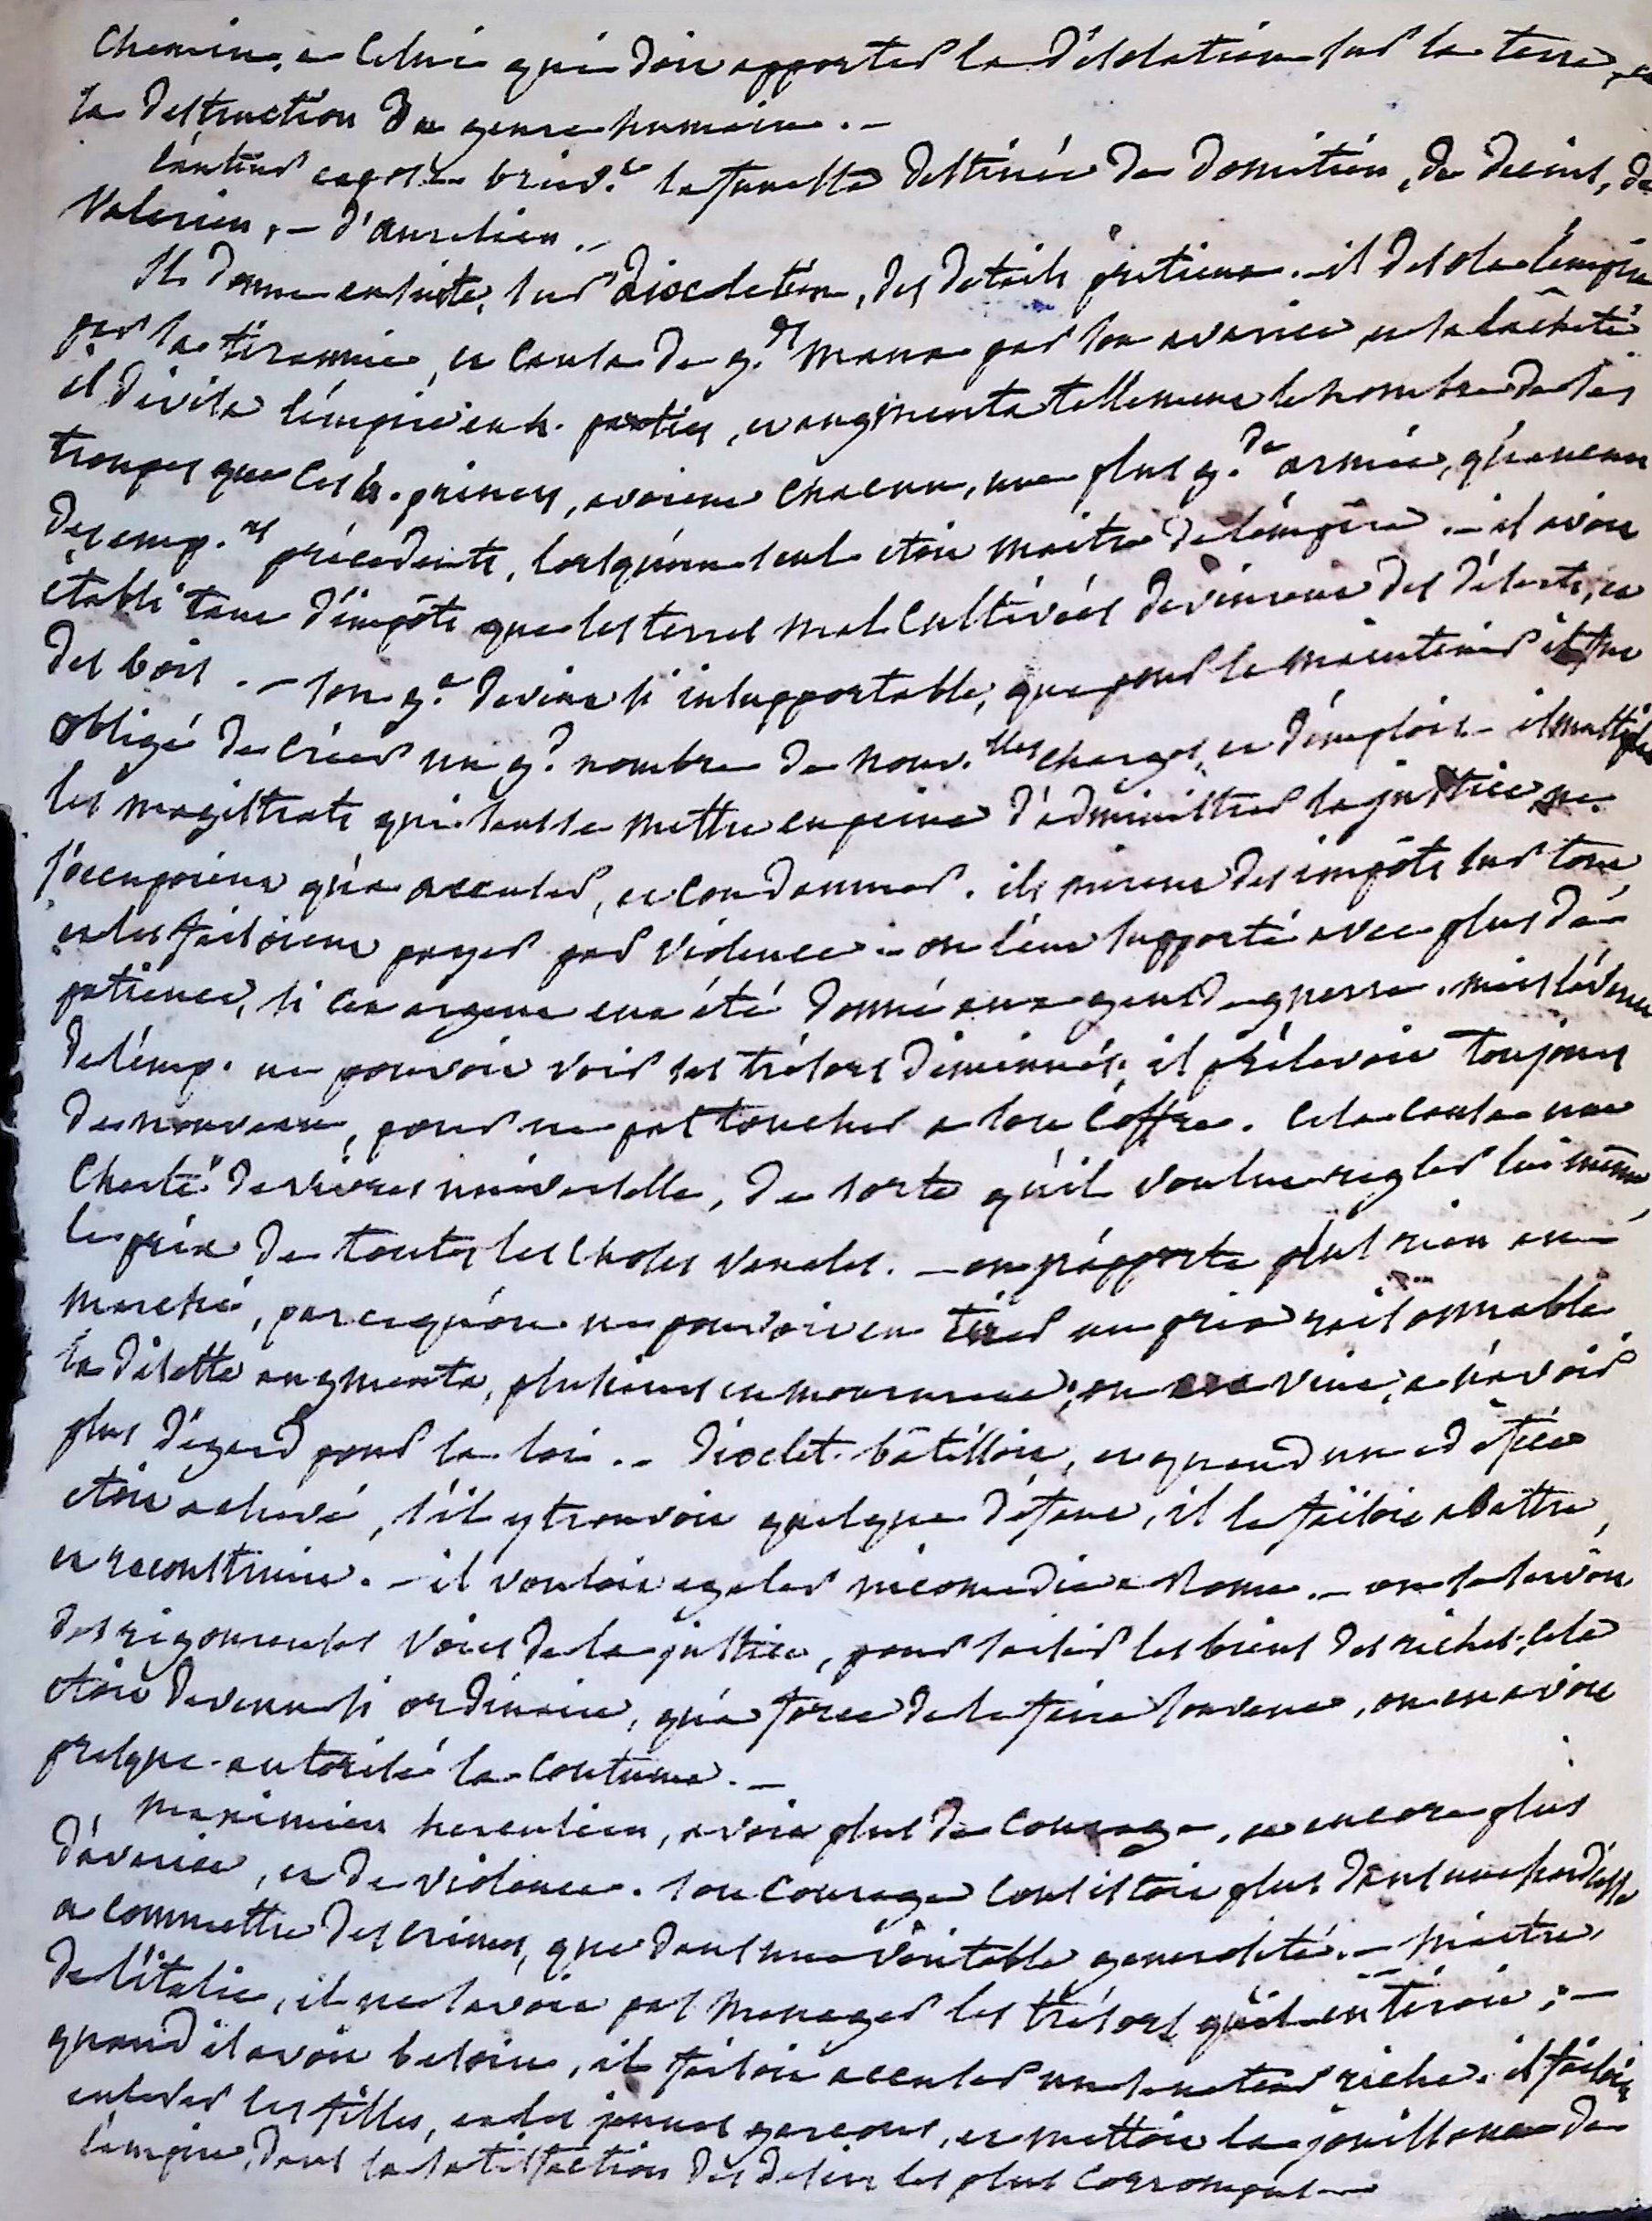 chemin, a celui qui doit apporter la désolation sur la terre, et
la destruction du genre humain. –
l'auteur expose briev.t la funeste destinée de Domitien, de decius, de
Valerien, – d'aurelien. –
Il donne ensuite, sur dioclétien, des details pretieux. – il désola l'empire
par sa tirannie, et causa de g.ds maux par son avarice, et sa lâcheté
il divisa l'empire en 4. parties, et augmenta tellement le nombre de ses
troupes que ces 4. princes, avoient chacun, une plus g.de armée, qu'aucun
des emp.rs précédents, lorsqu'un seul etoit maitre de l'empire. – il avoit
établi tant d'impôts que les terres mal cultivées devinrent des déserts, et
des bois. – son g.t devint si insupportable, que pour le maintenir il fut
obligé de créer un g.d nombre de nouv.lles charges, et d'emplois. – il multiplia
les magistrats qui sans se mettre en peine d'administrer la justice ne
s'occupoient qu'a accuser, et condamner. ils mirent des impôts sur tout
et les faisoient payer par violence. – on l'eut supporté avec plus de
patience, si cet argent eut été donné aux gens de guerre. mais l'avarice
de l'emp. ne pouvoit voir ses trésors diminués, il prélevoit toujours
de nouveau, pour ne pas toucher a son coffre. cela causa une
cherté de vivres universelle, de sorte qu'il voulut regler lui même,
le prix de toutes les choses venales. – on n'apporta plus rien au
marché, parcequ'on ne pouvoit en tirer un prix raisonnable
la disette augmenta, plusieurs en moururent, on en vint, a n'avoir
plus d'égard pour la loi. – dioclet. bâtissoit, et quand un edifice
etoit achevé, s'il y trouvoit quelque défaut, il le faisoit abattre,
et reconstruire. – il vouloit egaler nicomedie a Rome. – on se servoit
des rigoureuses voies de la justice, pour saisir les biens des riches, cela
etoit devenu si ordinaire, qu'a force de le faire souvent, on en avoit
presque autorisé la coutume. –
maximien herculien, avoit plus de courage, et encore plus
d'avarice, et de violence. son courage consistoit plus dans une hardiesse
a commettre des crimes, que dans une véritable generosité. – maitre,
de l'italie, il ne savoit pas menager les trésors qu'il en tiroit; –
quand il avoit besoin, il faisoit accuser un senateur riche. il faisoit
enlever les filles, et les jeunes garcons, et mettoit la jouissance de
l'empire, dans la satisfaction des desirs les plus corrompus –